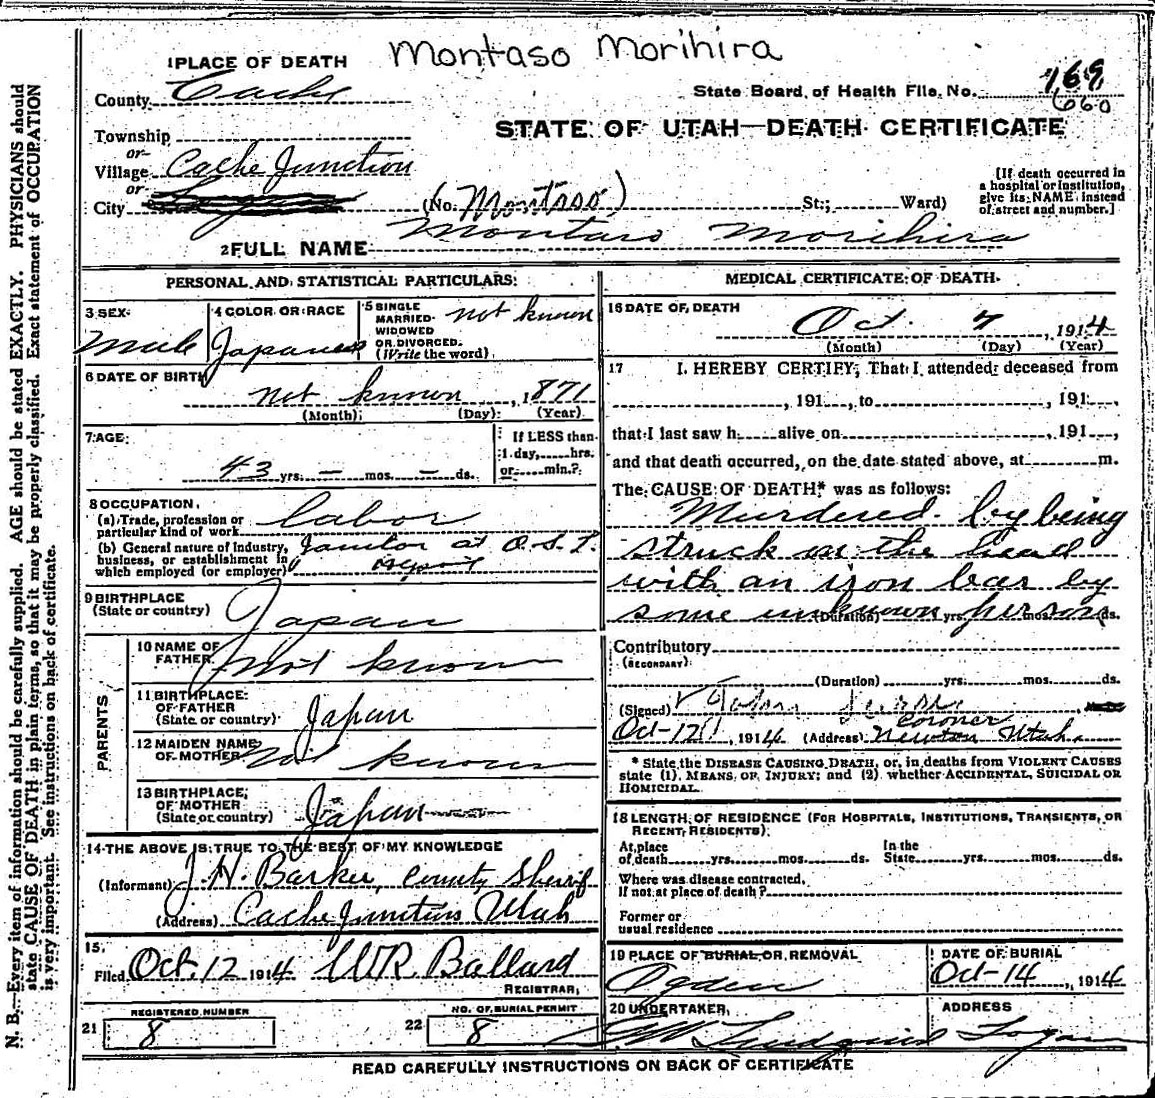 Montaso Morihira
1 PLACE OF DEATH
County Cache
State Board of Health File No. 169
660
STATE OF UTAH—DEATH CERTIFICATE
Township
or
Village Cache Junction
or
City Logan (No. Montaso) St.; Ward)
[If death occurred in a hospital or institution, give its NAME instead of street and number.]
2 FULL NAME Montaro Morihira
PERSONAL AND STATISTICAL PARTICULARS
3 SEX
Male
4 COLOR OR RACE
Japanese
5 SINGLE MARRIED WIDOWED OR DIVORCED. (Write the word)
not known
6 DATE OF BIRTH
not known, 1871
(Month) (Day) (Year)
7 AGE
43 yrs. — mos. — ds.
If LESS than 1 day, hrs. or min.?
8 OCCUPATION
(a) Trade, profession or particular kind of work
labor
(b) General nature of Industry, business, or establishment in which employed (or employer)
Janitor at O.S.L.
9 BIRTHPLACE
(State or country)
Japan
PARENTS
10 NAME OF FATHER
Not known
11 BIRTHPLACE OF FATHER
(State or country)
Japan
12 MAIDEN NAME OF MOTHER
Not known
13 BIRTHPLACE OF MOTHER
(State or country)
Japan
14 THE ABOVE IS TRUE TO THE BEST OF MY KNOWLEDGE
(Informant) J. H. Barker, County Sherrif
(Address) Cache Junction Utah
15
Filed Oct. 12 1914 WR Ballard
REGISTRAR
21 REGISTERED NUMBER
8
22 NO. OF BURIAL PERMIT
8
MEDICAL CERTIFICATE OF DEATH
16 DATE OF DEATH
Oct. 7, 1914
(Month) (Day) (Year)
17 I HEREBY CERTIFY, That I attended deceased from
, 191 , to , 191 ,
that I last saw h alive on , 191 ,
and that death occurred, on the date stated above, at m.
The CAUSE OF DEATH* was as follows:
Murdered by being
struck on the head
with an iron bar by
some unknown person
(Duration) yrs. mos. ds.
Contributory
(SECONDARY)
(Duration) yrs. mos. ds.
(Signed) John
coroner
Oct-12, 1914 (Address) Newton Utah
* State the DISEASE CAUSING DEATH, or, in deaths from VIOLENT CAUSES state (1) MEANS OF INJURY; and (2) whether ACCIDENTAL, SUICIDAL OR HOMICIDAL.
18 LENGTH OF RESIDENCE (FOR HOSPITALS, INSTITUTIONS, TRANSIENTS, OR RECENT RESIDENTS)
At place of death yrs. mos. ds. In the State yrs. mos. ds.
Where was disease contracted, if not at place of death?
Former or usual residence
19 PLACE OF BURIAL OR REMOVAL
Ogden
DATE OF BURIAL
Oct-14, 1914
20 UNDERTAKER
ADDRESS
Logan
READ CAREFULLY INSTRUCTIONS ON BACK OF CERTIFICATE
N. B.—Every item of information should be carefully supplied. AGE should be stated EXACTLY. PHYSICIANS should
state CAUSE OF DEATH in plain terms, so that it may be properly classified. Exact statement of OCCUPATION
is very important. See instructions on back of certificate.